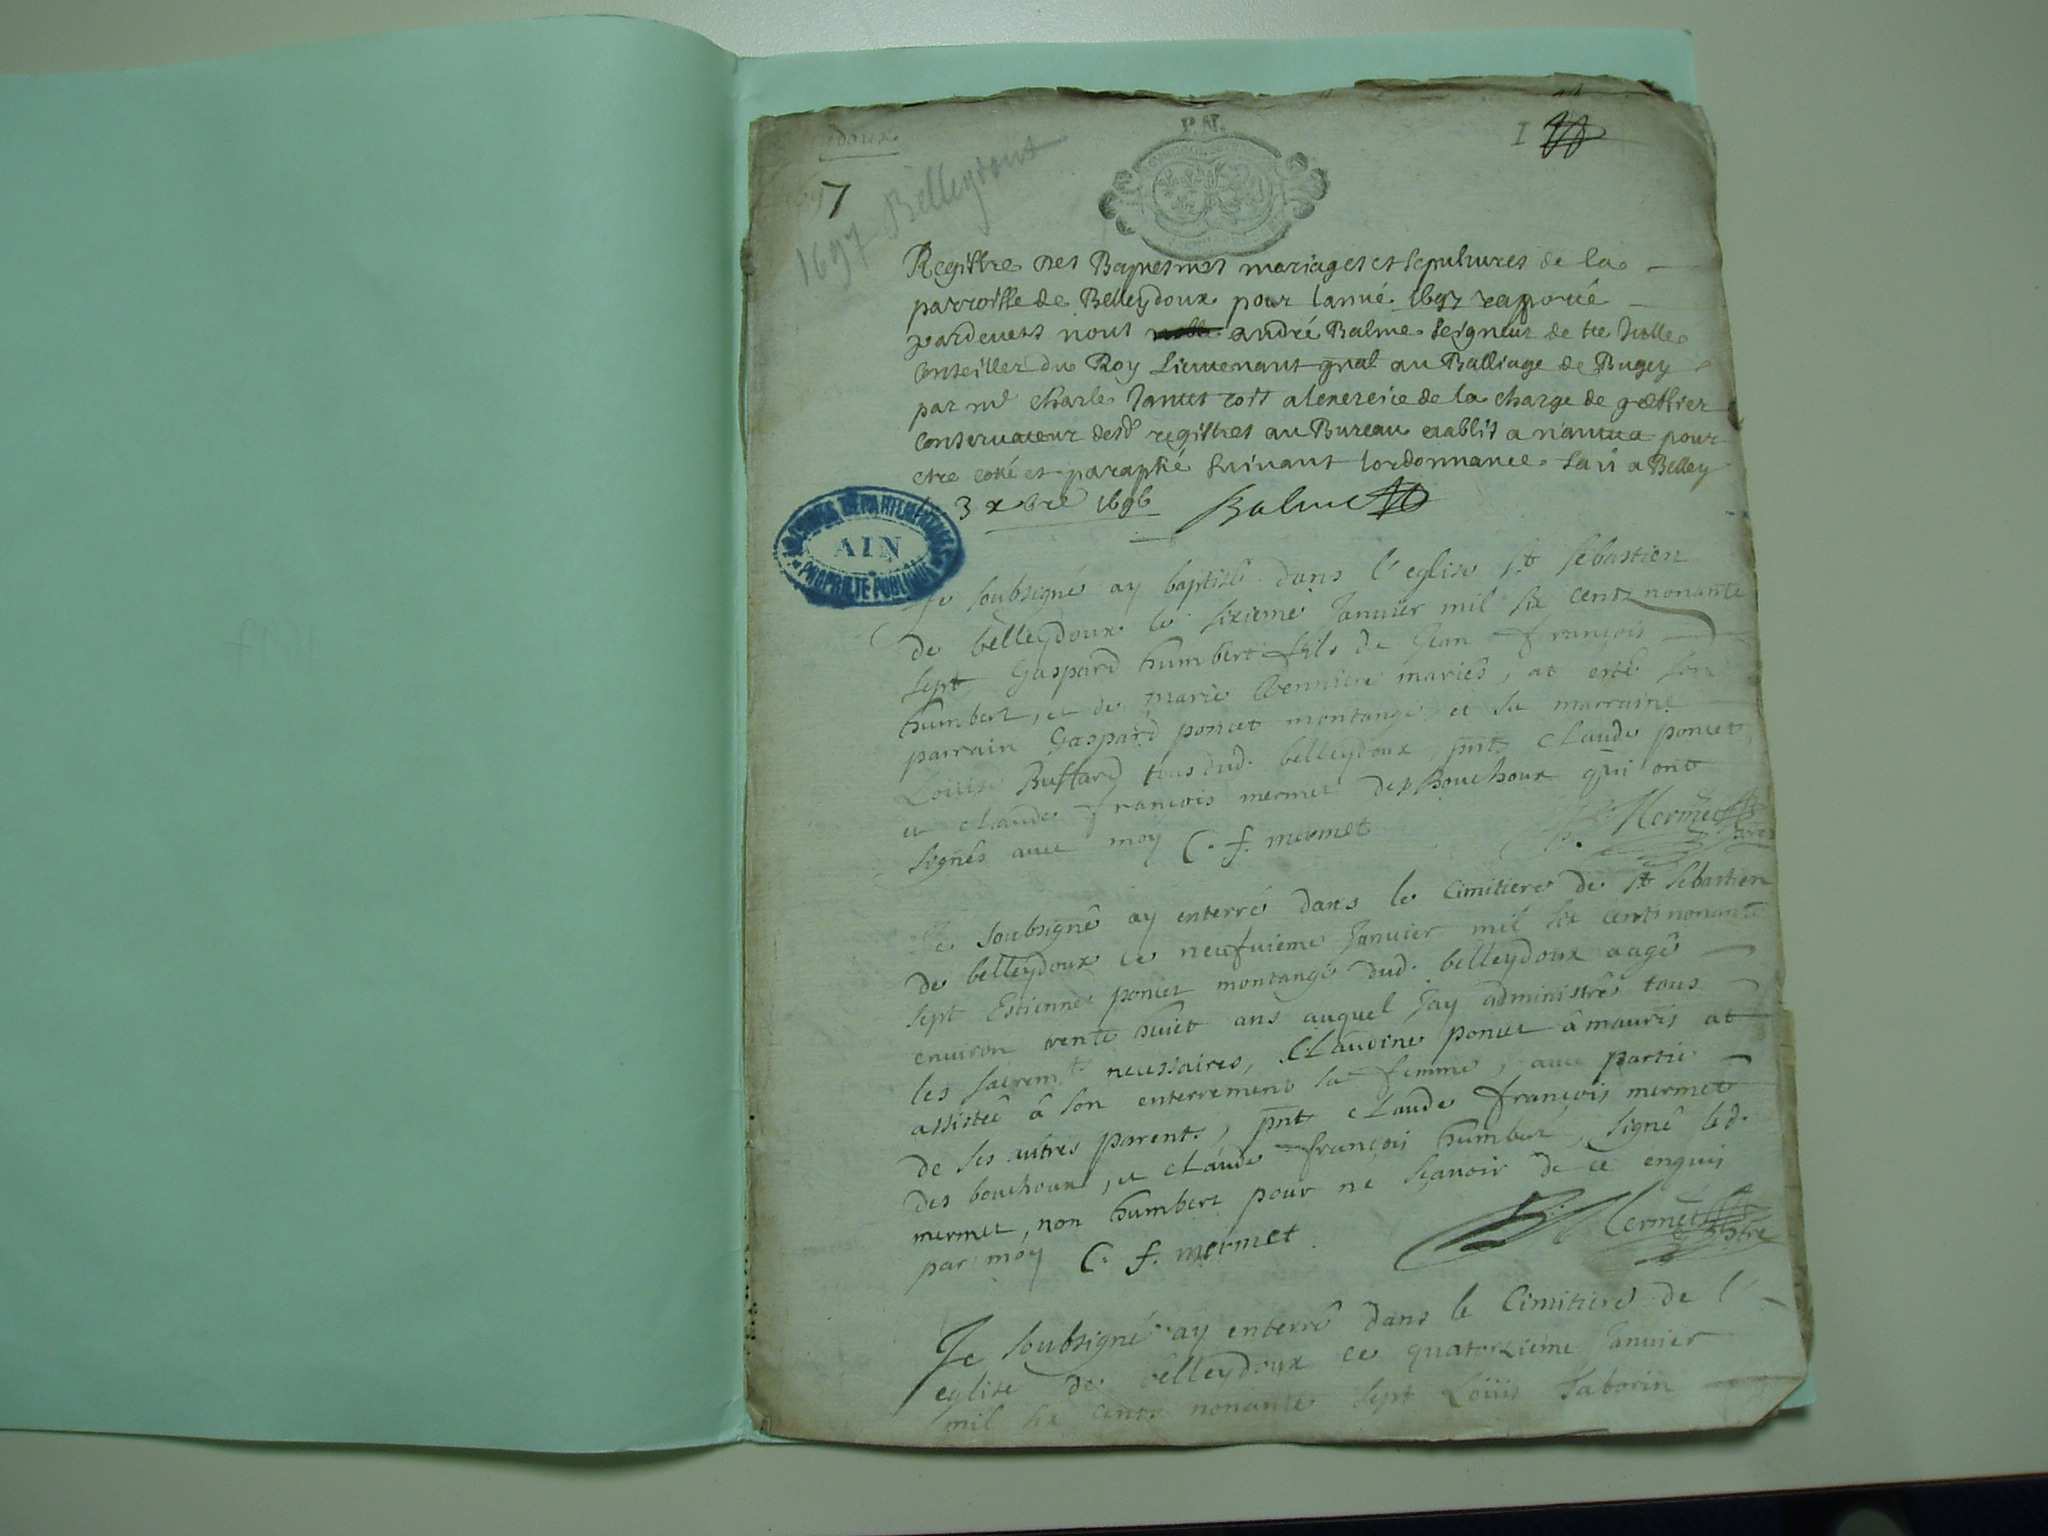 P.N.
I
7
1697 Belleydoux
Registre des Baptesmes mariages et sepultures de la
parroisse de Belleydoux pour lanné 1697 raporté
pardevers nous andré Balme seigneur de
Conseiller du Roy Lieutenant gnal au Balliage de Bugey
par mr charle Janet a lexercice de la charge de greffier
conservateur desd registres au Bureau etablis a nantua pour
etre coté et paraphé suivant lordonnance fait a Belley
3 xbre 1696 Balme
ARCHIVES DÉPARTEMENTALES
AIN
PROPRIÉTÉ PUBLIQUE
Je soubsigné ay baptisé dans l'eglise st sebastien
de belleydoux le sixieme Janvier mil six cents nonante
sept Gaspard humbert fils de Jean françois
humbert, et de marie mariés, at esté son
parrain Gaspard poncet montange et sa marraine
Louise Buffard tous dud. belleydoux, pnts Claude poncet,
et claude françois mermet des bouchoux qui ont
signés avec moy C. f. mermet Mermet
Je soubsigné ay enterré dans le cimitiere de st sebastien
de belleydoux le neufvieme Janvier mil six cents nonante
sept Estienne poncet montange dud. belleydoux aagé
environ trente huict ans auquel Jay administrés tous
les sacremts necessaires, Claudine poncet âmauris at
assistée â son enterrement sa femme, avec partie
de ses autres parents, pnt claude françois mermet
des bouchoux, et claude françois humbert, signé led.
mermet, non humbert pour ne sçavoir de ce enquis
par moy C. f. mermet Mermet ptre
Je soubsigné ay enterré dans le Cimitiere de l'
eglise de belleydoux ce quatorzieme Janvier
mil six cents nonante sept Louis Taborin